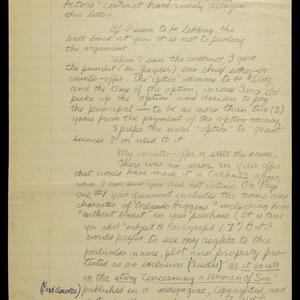 Actors' contract hand, unduly delayed
this letter.
If I seem to be lobbing the
ball back at you it is not to prolong
the argument.
When I saw the contract, I gave
the pundit (Mr. Ziegler) one chief either-or
counter-offer. The "option" advance to be $1,000
and the time of the option, in case Jerry Got
picks up the option and decides to pay
the principal — to be no more than two (2)
years from the payment of the option money.
I prefer the word "option" to "grant"
because I'm used to it.
My counter-offer is still the same.
There was an error in your offer
that would have made it a Catch-22 affair,
which I am sure you did not intend. On Page
one #1, your document includes the name and
character of "Orlando Higgins" including him
"without limit" in your purchase (it is true
you add "subject to Paragraph 17") But I
would prefer to see my rights to this
particular name, plot and property pro-
tected as an exclusion (inside) as it exists
in the story "Concerning a Woman of Sin"
published in a magazine, copyrighted, and
(End Quotes)